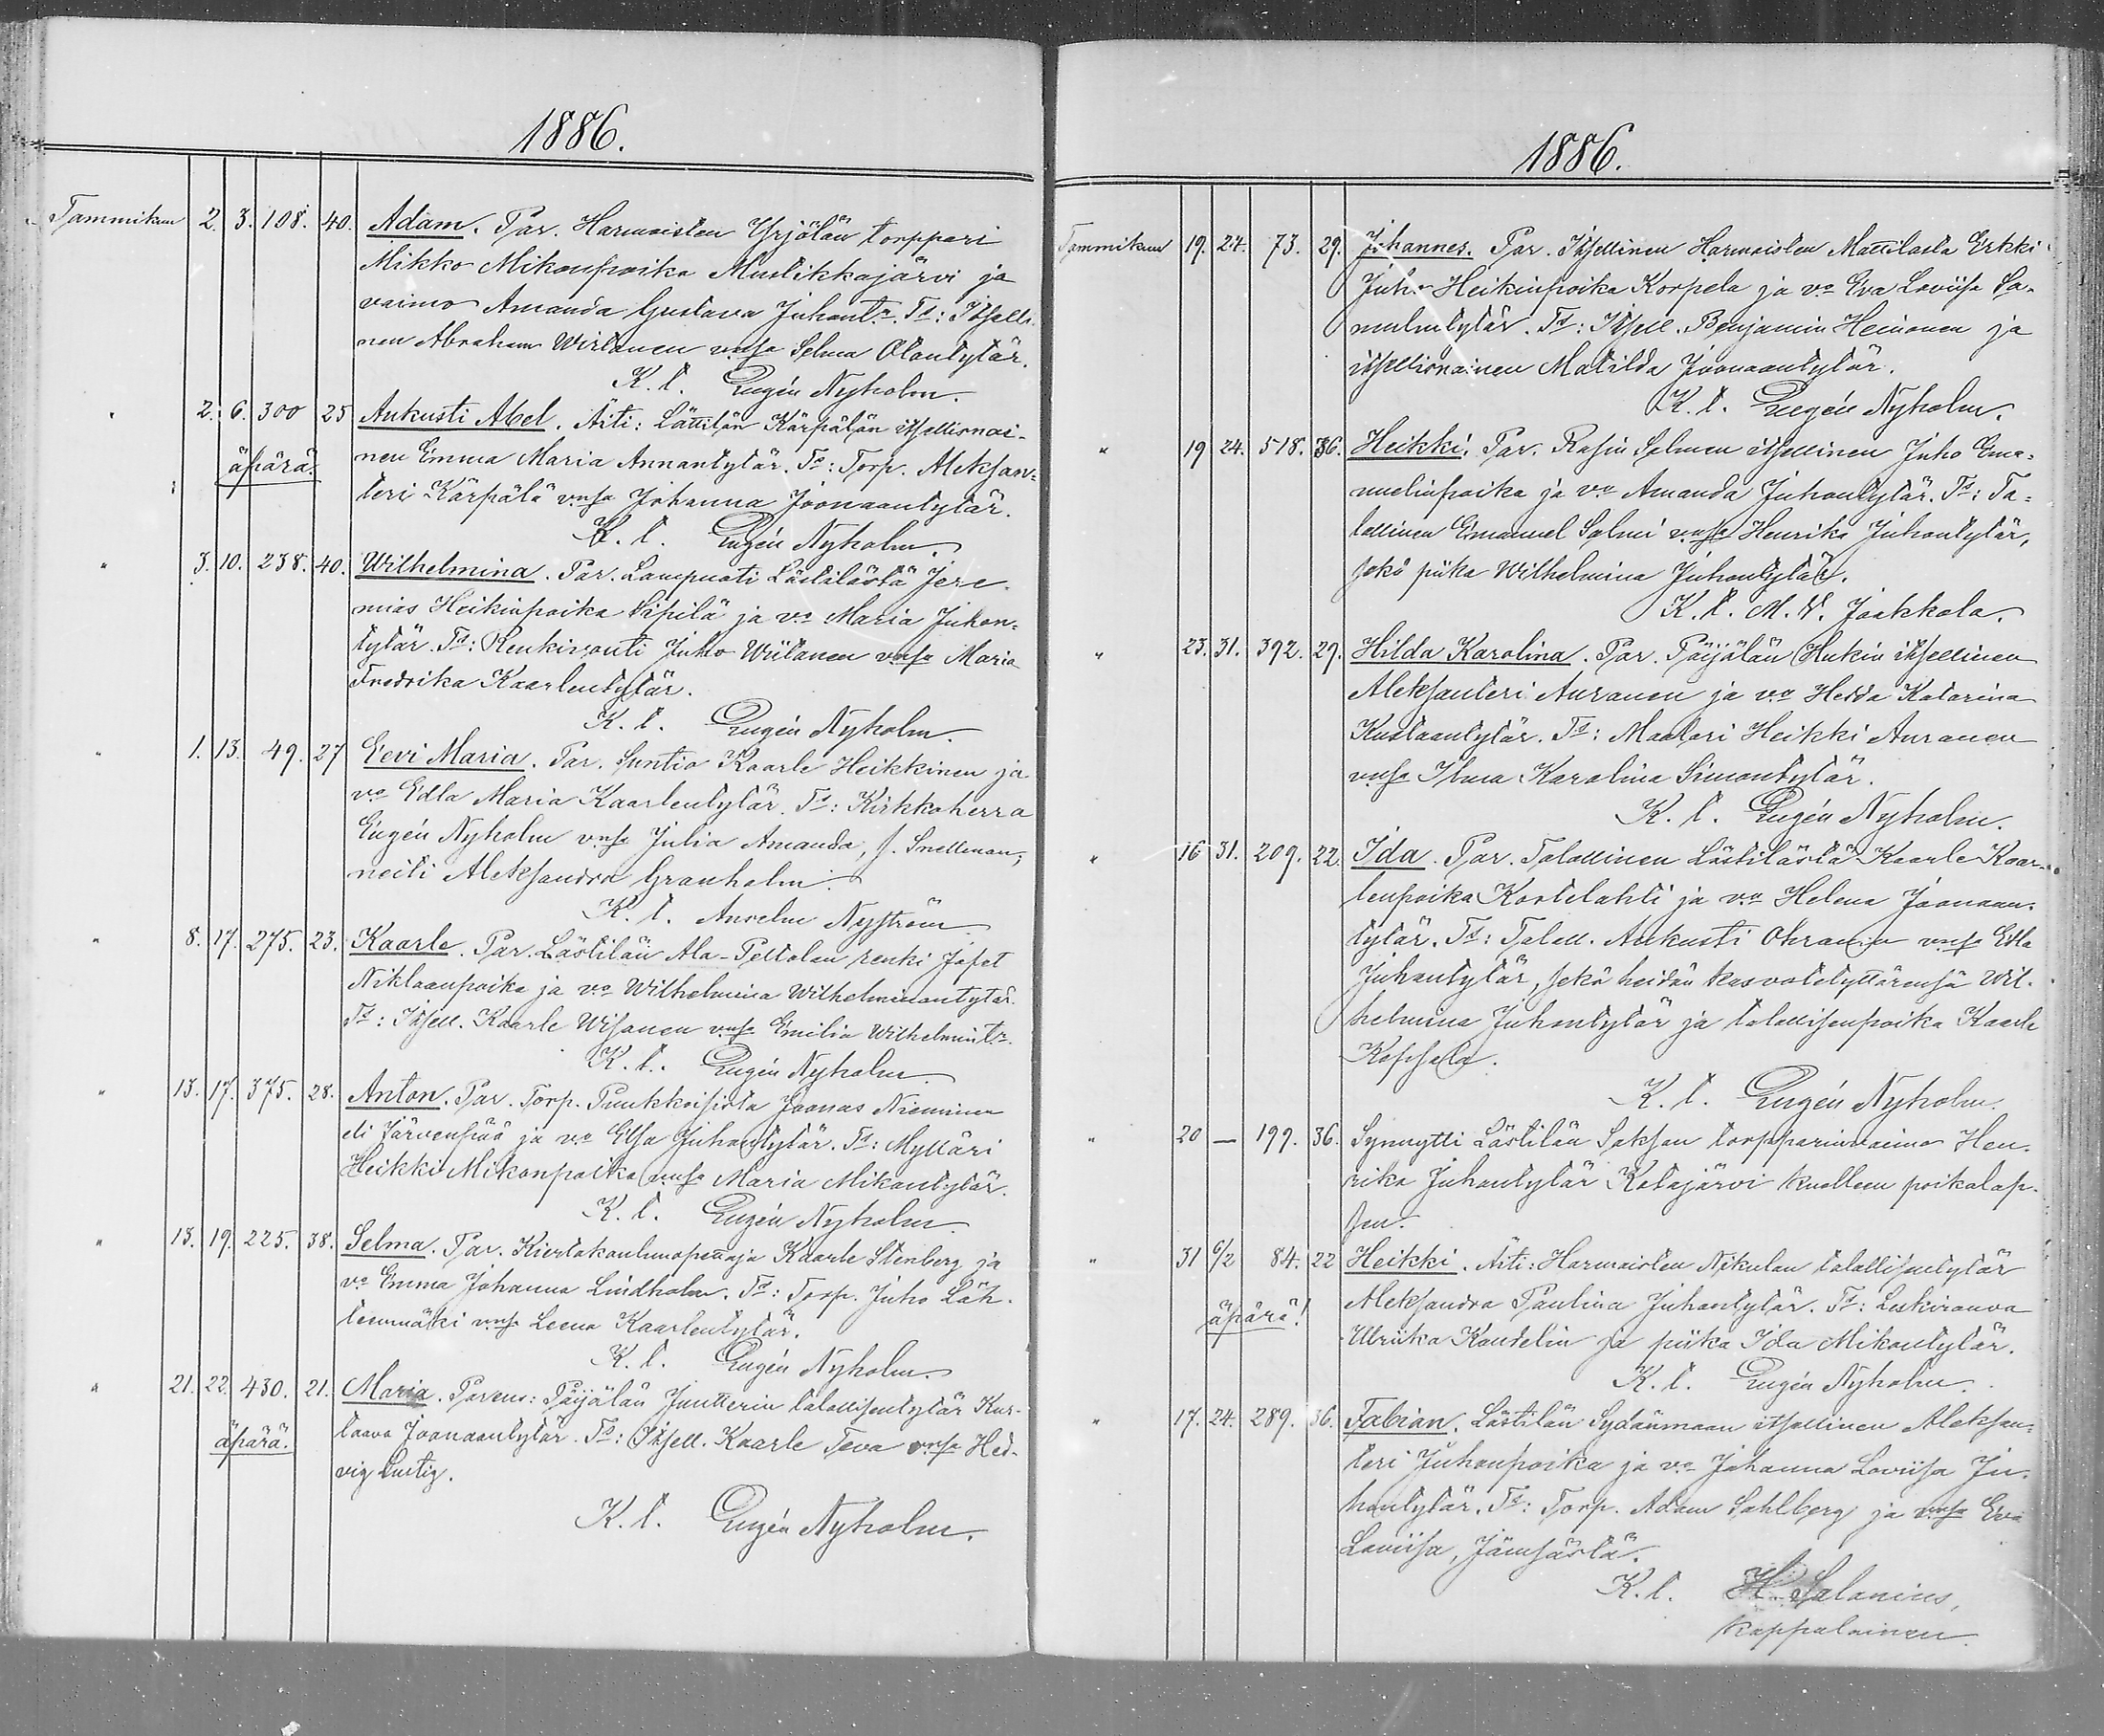 1886.
Tammikuu 2. 3. 108. 40. Adam. Par. Harmoisten Yrjölän torppari
Mikko Mikonpoika Mustikkajärvi ja
vaimo Amanda Gustava Juhant:r. Td: Itselli-
nen Abraham Wirtanen vnsa Selma Otontytär.
K. t. Eugén Nyholm.
" 2. 6. 300 25 Aukusti Abel. Äiti: Lästilän Kärpälän itsellisnai-
äpärä. nen Emma Maria Annantytär. Td: Torp. Aleksan-
teri Kärpälä vnsa Johanna Joonaantytär.
K. t. Eugén Nyholm.
" 3. 10. 238. 40. Wilhelmina. Par. Lampuoti Lästilästä Jere-
mias Heikinpoika Sipilä ja vo Maria Juhon-
tytär. Td: Renkivouti Juho Wiitanen vnsa Maria
Fredrika Kaarlentytär.
K. t. Eugén Nyholm.
" 1. 13. 49. 27 Eevi Maria. Par. Suntio Kaarle Heikkinen ja
vo Edla Maria Kaarlentytär. Td: Kirkkoherra
Eugén Nyholm vnsa Julia Amanda, f. Snellman,
neiti Aleksandra Granholm.
K. t. Anselm Nyström.
" 8. 17. 275. 23. Kaarle. Par. Lästilän Ala-Peltolan renki Jafet
Niklaanpoika ja vo Wilhelmina Wilhelminantytär.
Td: Itsell. Kaarle Wisanen vnsa Emilia Wilhelmint:r.
K. t. Eugén Nyholm.
" 13. 17. 375. 28. Anton. Par. Torp. Puukkoisista Joonas Nieminen
eli Järvenpää ja vo Elsa Juhontytär. Td: Mylläri
Heikki Mikonpoika vnsa Maria Mikontytär.
K. t. Eugén Nyholm.
" 13. 19. 225. 38. Selma. Par. Kiertokoulunopettaja Kaarle Stenberg ja
vo Emma Johanna Lindholm. Td: Torp. Juho Läh-
teenmäki vnsa Leena Kaarlentytär.
K. t. Eugén Nyholm.
" 21. 22. 430. 21. Maria. Parens: Päijälän Juntterin talollisentytär Kus-
äpärä. taava Joonaantytär. Td: Itsell. Kaarle Teva vnsa Hed-
vig Lustig.
K. t. Eugén Nyholm.
1886.
Tammikuu 19. 24. 73. 29. Johannes. Par. Itsellinen Harmoisten Mattilasta Erkki
Juho Heikinpoika Korpela ja vo Eva Loviisa Sa-
muelintytär. Td: Itsell. Benjamin Heinonen ja
itsellisnainen Matilda Joonaantytär.
K. t. Eugén Nyholm.
" 19 24. 518. 36. Heikki. Par. Rasin Salmen itsellinen Juho Ema-
nuelinpoika ja vo Amanda Juhontytär. Td: Ta-
lollinen Emanuel Salmi vnsa Henrika Juhontytär,
sekä piika Wilhelmina Juhontytär.
K. t. M. W. Jaakkola.
" 23. 31. 392. 29. Hilda Karolina. Par. Päijälän Hukin itsellinen
Aleksanteri Auranen ja vo Hedda Katarina
Kustaantytär. Td: Maalari Heikki Auranen
vnsa Ilma Karolina Simontytär.
K. t. Eugén Nyholm.
" 16 31. 209. 22. Ida. Par. Talollinen Lästilästä Kaarle Kaar-
lenpoika Kortelahti ja vo Helena Joonaan-
tytär. Td: Taloll. Aukusti Ohranen vnsa Edla
Juhontytär, sekä heidän kasvatetyttärensä Wil-
helmina Juhontytär ja talollisenpoika Kaarle
K. t. Eugén Nyholm.
" 20 — 199. 36. Synnytti Lästilän Saksan torpparinvaimo Hen-
rika Juhontytär Katajärvi kuolleen poikalap-
sen.
" 31 6/2 84. 22 Heikki. Äiti: Harmoisten Nikulan talollisentytär
äpärä! Aleksandra Paulina Juhontytär. Td: Leskirouva
Ulriika Kandelin ja piika Ida Mikontytär.
K. t. Eugén Nyholm.
" 17. 24. 289. 36. Fabian. Lästilän Sydänmaan itsellinen Aleksan-
teri Juhonpoika ja vo Johanna Loviisa Ju-
hontytär. Td: Torp. Adam Sahlberg ja vnsa Eva
Loviisa, Jämsästä.
K. t. H. Salonius,
kappalainen.